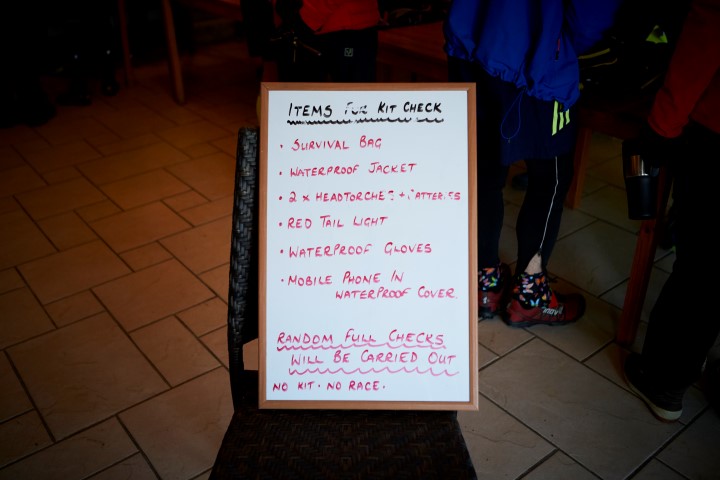 ITEMS FOR KIT CHECK
• SURVIVAL BAG
• WATERPROOF JACKET
• 2 X HEADTORCHES + BATTERIES
• RED TAIL LIGHT
• WATERPROOF GLOVES
• MOBILE PHONE IN
WATERPROOF COVER.
RANDOM FULL CHECKS
WILL BE CARRIED OUT
NO KIT. NO RACE.